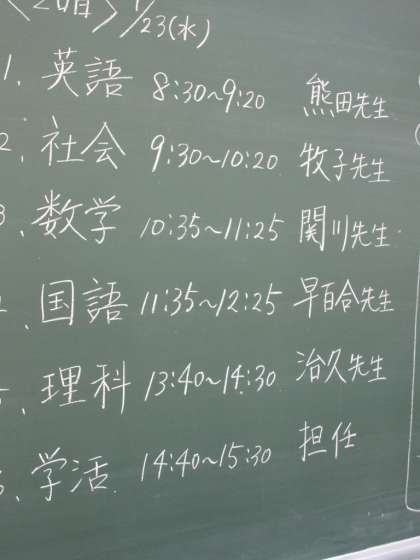 1/23(水)
1. 英語 8:30~9:20 熊田先生
2. 社会 9:30~10:20 牧子先生
3. 数学 10:35~11:25 関川先生
. 国語 11:35~12:25 早百合先生
. 理科 13:40~14:30 治久先生
. 学活 14:40~15:30 担任